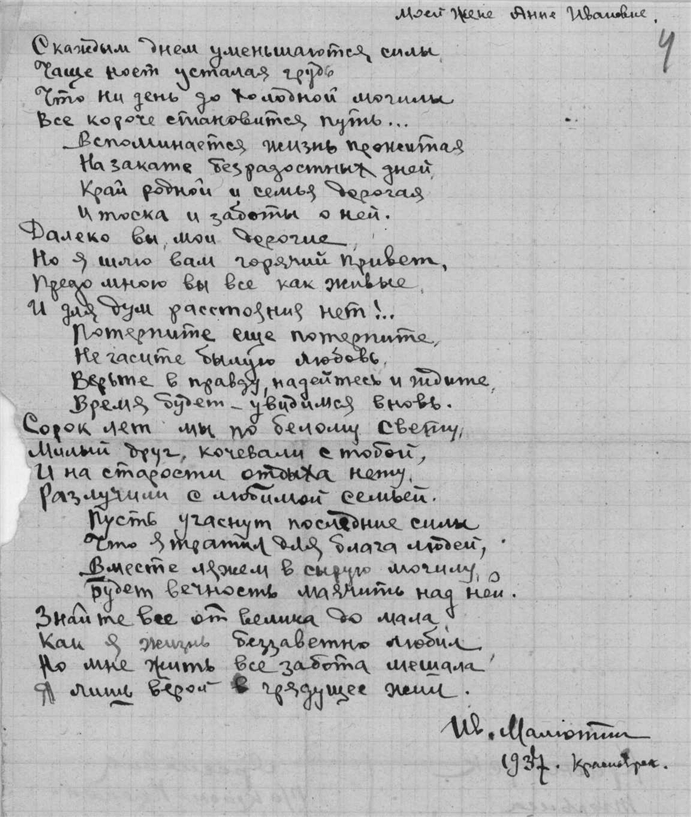 Моей Жене Анне Ивановне.
4
С каждым днем уменьшаются силы
Чаще ноет усталая грудь
Что ни день до холодной могилы
Все короче становится путь...
Вспоминается жизнь прожитая
На закате безрадостных дней,
Край родной и семья дорогая
И тоска и заботы о ней.
Далеко вы, мои дорогие,
Но я шлю вам горячий привет,
Предо мною вы все как живые,
И для дум расстояния нет!..
Потерпите еще потерпите,
Не гасите былую любовь,
Верьте в правду, надейтесь и ждите,
Время будет – увидимся вновь.
Сорок лет мы по белому свету,
Милый друг, кочевали с тобой,
И на старости отдыха нету,
Разлучили с любимой семьей.
Пусть угаснут последние силы
Что я тратил для блага людей,
Вместе ляжем в сырую могилу,
Будет вечность маячить над ней.
Знайте все от велика до мала,
Как я жизнь беззаветно любил,
Но мне жить все забота мешала
Я лишь верой в грядущее жил.
Ив. Малютин
1937.